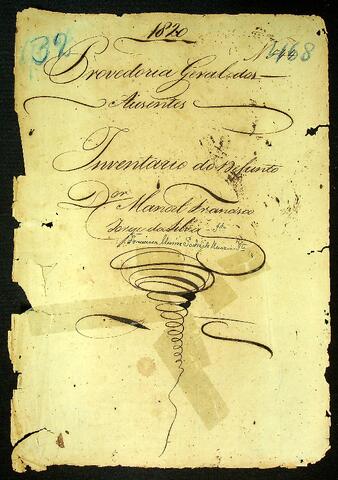 1820
39 N 468
Provedoria Geral dos
Auzentes
Inventario do Defunto
Dor Manoel Francisco
Jorge da Silva
Francisca